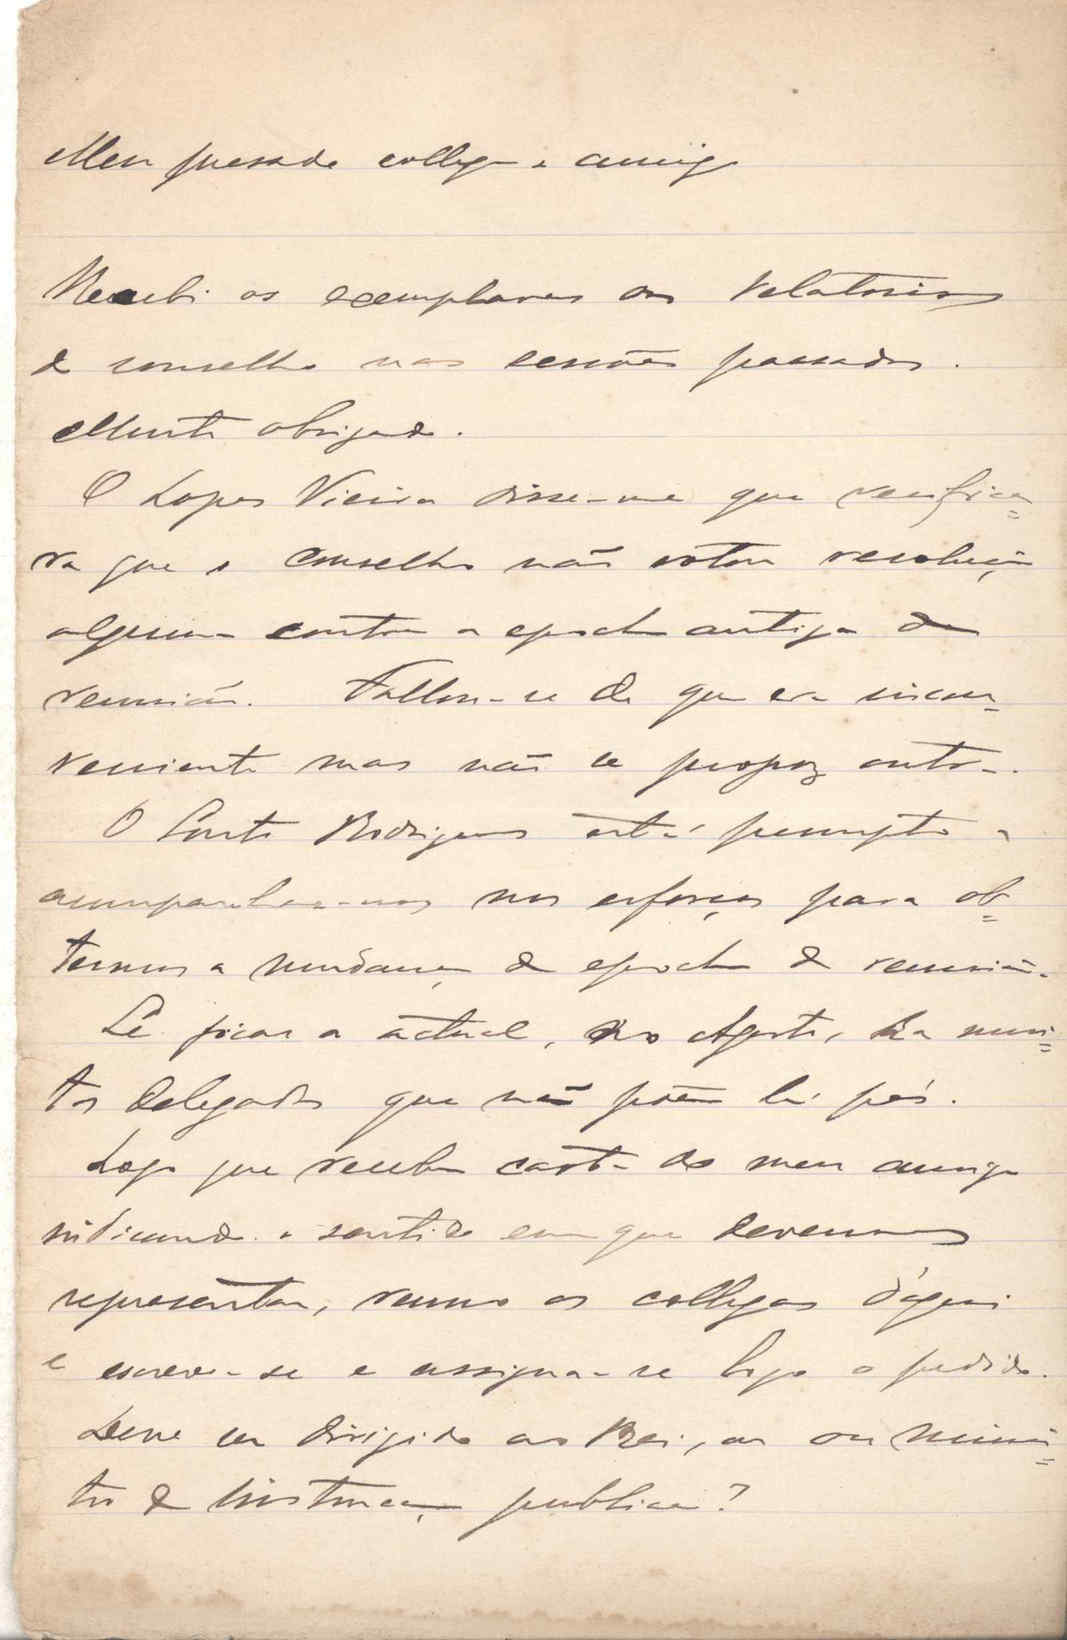 Meu presado collega e amigo
Recebi os exemplares dos relatorios
do conselho nas sessões passadas.
Muito obrigado.
O Lopes Vieira disse-me que verifica=
ra que o conselho não votou resolução
alguma contra a epocha antiga da
reunião. Fallou-se de que era incon=
veniente mas não se propoz outra.
O Souto Rodrigues está prompto a
acompanhar-nos nos esforços para ob=
termos a mudança de epocha de reunião.
Se ficar a actual, no Agosto, ha mui=
tos delegados que não põem lá pés.
Logo que receba carta do meu amigo
indicando o sentido em que devemos
representar, reuno os collegas d'aqui
e escreve-se e assigna-se logo o pedido.
Deve ser dirigido ao Rei, ou ao minis=
tro de instrucção publica?